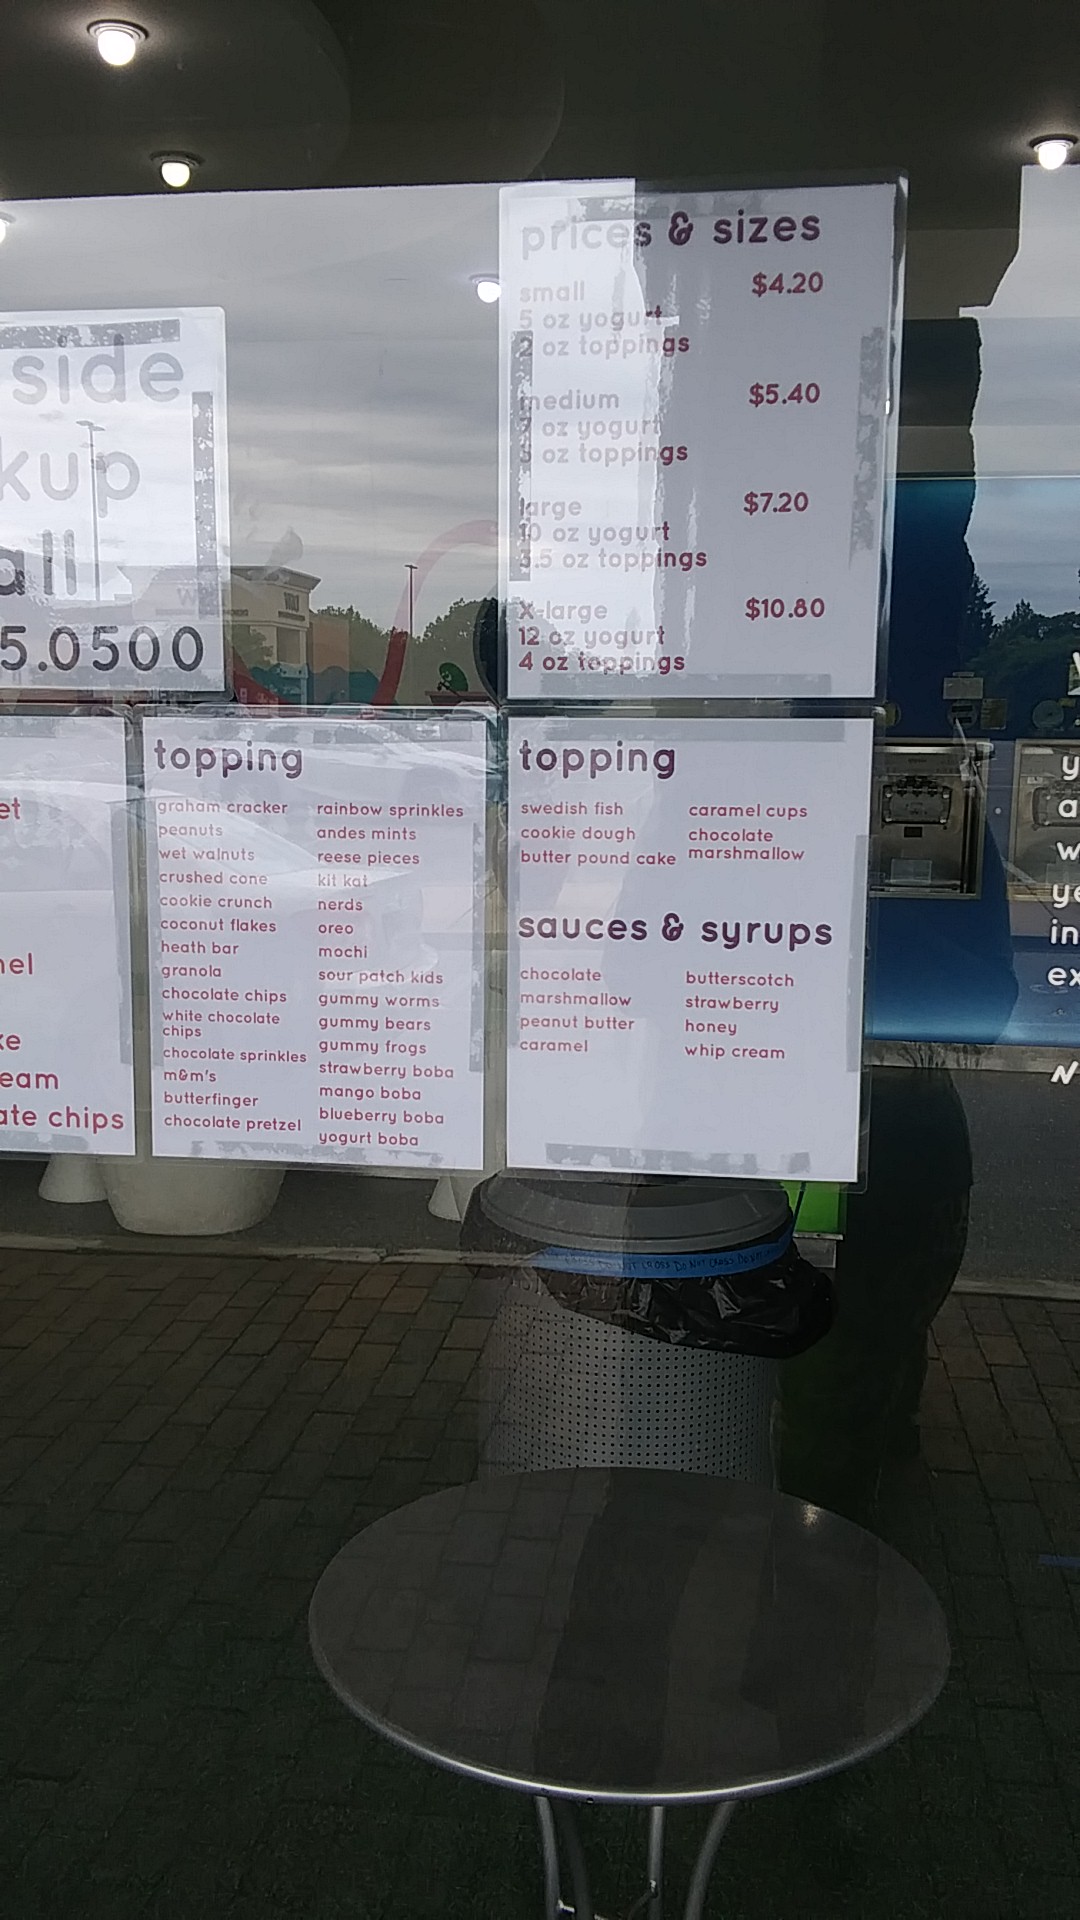 side
kup
all
5.0500
prices & sizes
small $4.20
5 oz yogurt
2 oz toppings
medium $5.40
oz yogurt
oz toppings
large $7.20
10 oz yogurt
3.5 oz toppings
x-large $10.80
12 oz yogurt
4 oz toppings
et
nel
ke
eam
ate chips
topping
graham cracker
peanuts
wet walnuts
crushed cone
cookie crunch
coconut flakes
heath bar
granola
chocolate chips
white chocolate
chips
chocolate sprinkles
m&m's
butterfinger
chocolate pretzel
rainbow sprinkles
andes mints
reese pieces
kit kat
nerds
oreo
mochi
sour patch kids
gummy worms
gummy bears
gummy frogs
strawberry boba
mango boba
blueberry boba
yogurt boba
topping
swedish fish
cookie dough
butter pound cake
caramel cups
chocolate
marshmallow
sauces & syrups
chocolate
marshmallow
peanut butter
caramel
butterscotch
strawberry
honey
whip cream
y
a
w
ye
in
ex
N